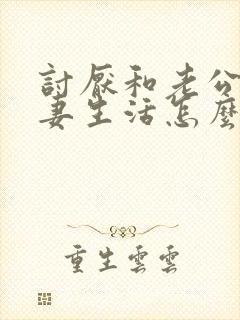 討厭和老公
妻生活怎麼
重生雲雲